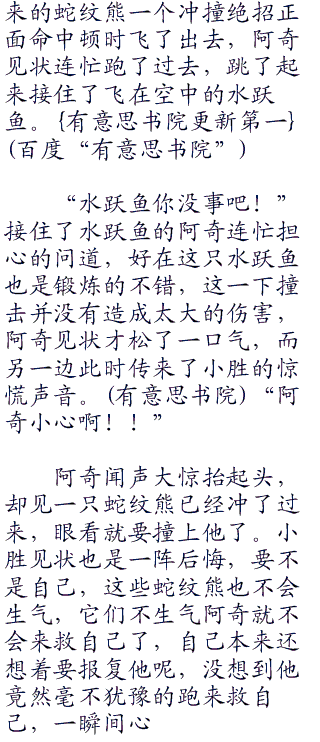 来的蛇纹熊一个冲撞绝招正
面命中顿时飞了出去，阿奇
见状连忙跑了过去，跳了起
来接住了飞在空中的水跃
鱼。{有意思书院更新第一}
(百度“有意思书院”)
“水跃鱼你没事吧！”
接住了水跃鱼的阿奇连忙担
心的问道，好在这只水跃鱼
也是锻炼的不错，这一下撞
击并没有造成太大的伤害，
阿奇见状才松了一口气，而
另一边此时传来了小胜的惊
慌声音。(有意思书院)“阿
奇小心啊！！”
阿奇闻声大惊抬起头，
却见一只蛇纹熊已经冲了过
来，眼看就要撞上他了。小
胜见状也是一阵后悔，要不
是自己，这些蛇纹熊也不会
生气，它们不生气阿奇就不
会来救自己了，自己本来还
想着要报复他呢，没想到他
竟然毫不犹豫的跑来救自
己，一瞬间心